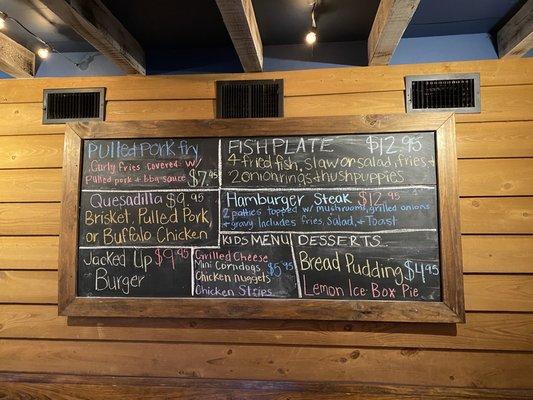 Pulled Pork Fry
Curly Fries covered w/
Pulled pork + bbq sauce $7.95
Quesadilla $9.95
Brisket, Pulled Pork,
or Buffalo Chicken
Jacked Up $9.95
Burger
FISH PLATE $12.95
4 fried fish, slaw or salad, fries +
2 onion rings + hushpuppies
Hamburger Steak $12.95
2 patties topped w/ mushrooms, grilled onions
+ gravy includes fries, Salad, + Toast
KIDS MENU
Grilled Cheese
Mini Corndogs $5.95
Chicken nuggets
Chicken Strips
DESSERTS
Bread Pudding $4.95
Lemon Ice Box Pie